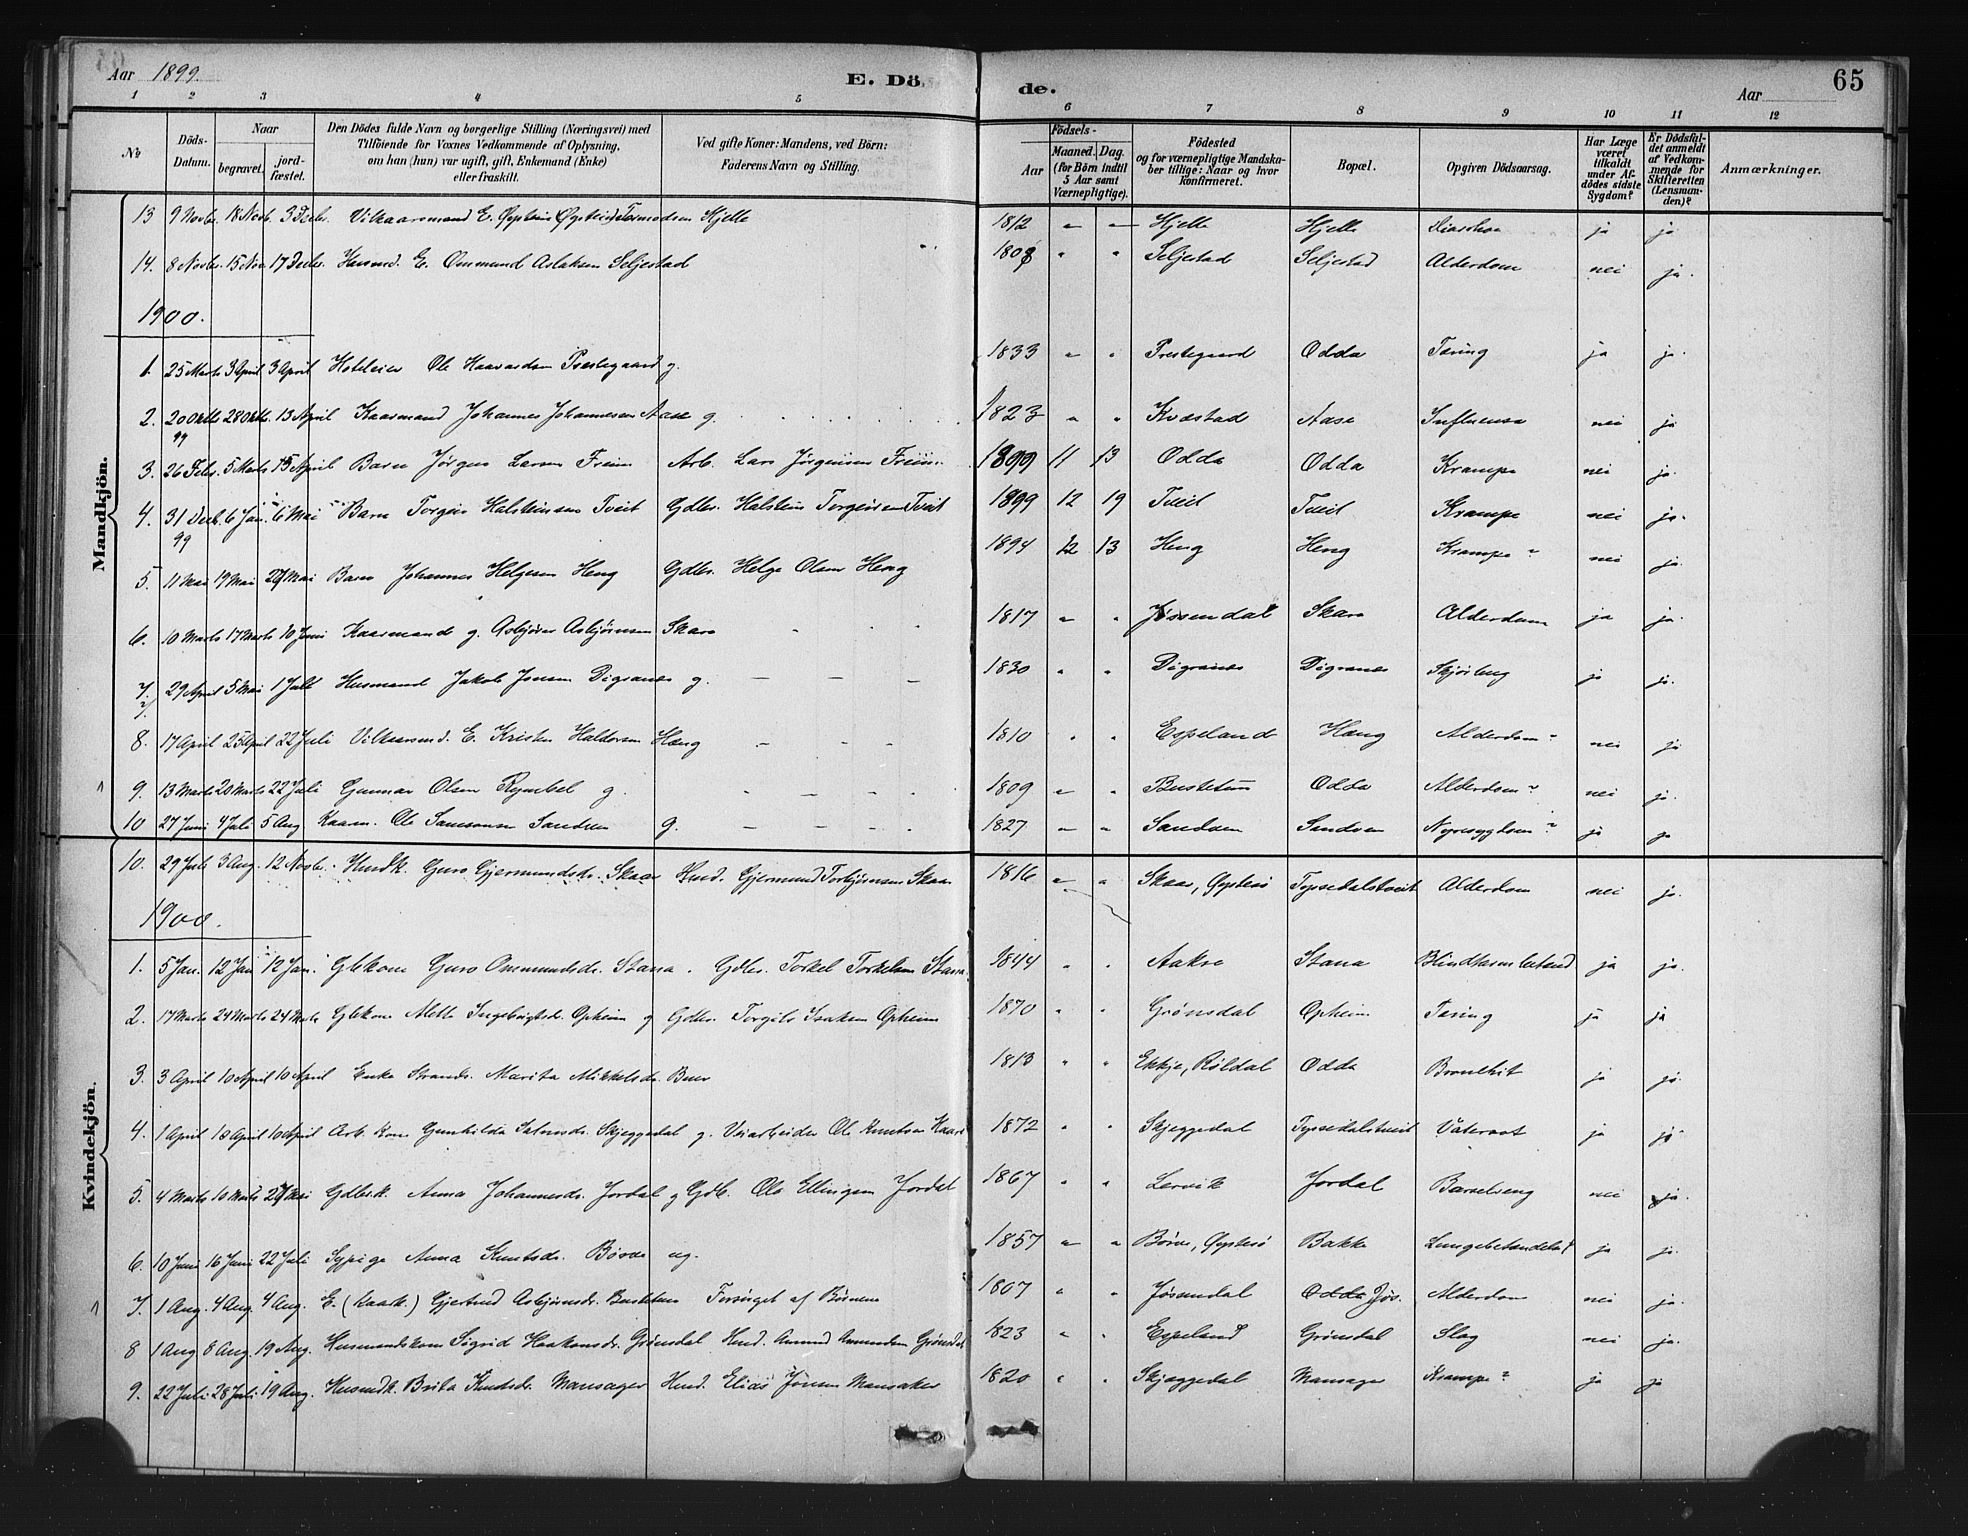 Aar 1899. E. Dö
de. Aar 65
1 2 3 4 5 6 7 8 9 10 11 12
№ Döds-Datum. Naar begravet. jord-fæstet. Den Dödes fulde Navn og borgerlige Stilling (Næringsvei) med Tilföiende for Voxnes Vedkommende af Oplysning, om han (hun) var ugift, gift, Enkemand (Enke) eller fraskilt. Ved gifte Koner: Mandens, ved Börn: Faderens Navn og Stilling. Födsels- Aar Maaned. Dag. (for Börn indtil 5 Aar samt Værnepligtige). Födested og for værnepligtige Mandska-ber tillige: Naar og hvor konfirmeret. Bopæl. Opgiven Dödsaarsag. Har Læge været tilkaldt under Af-dödes sidste Sygdom? Er Dödsfal-det anmeldt af Vedkom-mende for Skifteretten (Lensman-den)? Anmærkninger.
Mandkjön.
13 9 Novbr. 18 Novb. 3 Decbr. Vilkaarsmand E. Øystein Tormodsen Hjelle 1812 " " Hjelle Hjelle ja ja
14. 8 Novbr. 15 Nov. 17 Decbr. Husmd. E. Ommund Aslaksen Seljestad 1808 " " Seljestad Seljestad Alderdom nei ja.
1900.
1. 25 Marts 3 April 3 April Hoteleier Ole Haavardsen Præstegaard g. 1833 " " Prestegaard Odda Tæring ja ja.
2. 20 Oktb. 99 28 Oktb. 13 April Kaarmand Johannes Johannesen Aase g. 1823 " " Kvæstad Aase Influensa nei ja
3. 26 Febr. 5 Marts 15 April Barn Jørgen Larsen Freim Arb. Lars Jørgensen Freim 1899 11 13 Odda Odda Krampe nei ja.
4. 31 Decb. 99 6 Jan. 6 Mai Barn Torgeir Halsteinsen Tveit Gdbr. Halstein Torgeirsen Tveit 1899 12 19 Tveit Tveit Krampe nei ja.
5. 11 Mai 19 Mai 27 Mai Barn Johannes Helgesen Heng Gdbr. Helge Olsen Heng 1894 12 13 Heng Heng Krampe ? nei ja.
6. 10 Marts 17 Marts 10 Juni Kaarmand g. Asbjørn Asbjørnsen Skare 1817 " " Jøsendal Skare Alderdom ja ja.
7. 29 April 5 Mai 1 Juli Husmand Jakob Jonsen Digranes g. 1830 " " Digranes Digranes Skjørbug ja ja.
8. 17 April 25 April 22 Juli Vilkaarsmd. E. Kristen Haldorsen Hæng 1810 " " Espeland Hæng Alderdom ? nei ja
9. 13 Marts 20 Marts 22 Juli Gunnar Olsen g. 1809 " " Bustetun Odda Alderdom ? nei ja.
10 27 Juni 4 Juli 5 Aug Kaarm. Ole Samsonsen Sandven g. 1827 " " Sandven Sandven Nyresygdom ? ja ja
Kvindekjön.
10. 29 Juli 3 Aug. 12 Novbr. Husdk. Guro Gjermundsdr. Skaar Husd. Gjermund Torbjørnsen Skaar 1816 " " Skaar, Øystesø Tyssedalstveit Alderdom nei ja.
1900.
1. 5 Jan. 12 Jan 12 Jan. Gbkone Guro Ommundsdr. Stana. Gdbr. Torkel Torkelsen Stana 1844 " " Aakre Stana Blindtarmbetænd ja ja.
2. 17 Marts 24 Marts 24 Marts Gbkone Mette Ingebrigtsdr. Opheim g Gdbr. Torgils Isaksen Opheim 1870 " " Grønsdal Opheim Tæring ja ja
3. 3 April 10 April 10 April Enke Strands. Marita Mikkelsdr. Buer 1813 " " Ekkje, Røldal Odda Bronkit ja ja.
4. 1 April 10 April 10 April Arb. kone Gunhilda Skjeggedal g. Veiarbeider Ole Knutsen 1872 " " Skjeggedal Tyssedalstveit Vatersot ja ja
5. 4 Marts 10 Marts 27 Mai Gdbrk. Anna Johannesdr. Jordal g Gdb. Ole Ellingsen Jordal 1867 " " Lervik Jordal Barselseng nei ja.
6. 10 Juni 16 Juni 22 Juli Sypige Anna Knutsdr. Børve ug. 1857 " " Børve, Øystesø Bakke Lungebetændelse ja ja.
7. 1 Aug. 4 Aug. 4 Aug. E. (Kaark.) Gjertrud Asbjørnsdr. Bustetun Forsørget af Børnene 1807 " " Jøsendal Odda Jøs. Alderdom nei ja.
8 1 Aug 8 Aug. 19 Aug. Husmandskone Sigrid Haakonsdr. Grønsdal Husd. Amund Amundsen Grønsdal 1823 " " Espeland Grønsdal Slag nei ja.
9. 22 Juli 28 Juli 19 Aug. Husmdk. Brita Knudsdr. Mansager Husd. Elias Jonsen Mansaker 1820 " " Skjæggedal Mansager Krampe ? ja ja